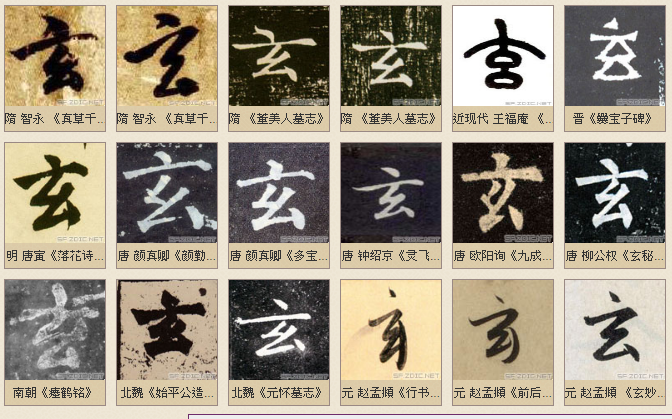 玄 玄 玄 玄 玄 玄
隋 智永 《真草千.. 隋 智永 《真草千.. 隋 《董美人墓志》 隋 《董美人墓志》 近现代 王福庵 《.. 晋《爨宝子碑》
玄 玄 玄 玄 玄 玄
明 唐寅《落花诗.. 唐 颜真卿《颜勤.. 唐 颜真卿《多宝.. 唐 钟绍京《灵飞.. 唐 欧阳询《九成.. 唐 柳公权《玄秘..
玄 玄 玄 玄 玄 玄
南朝《瘗鹤铭》 北魏《始平公造.. 北魏《元怀墓志》 元 赵孟頫《行书.. 元 赵孟頫《前后.. 元 赵孟頫 《玄妙..